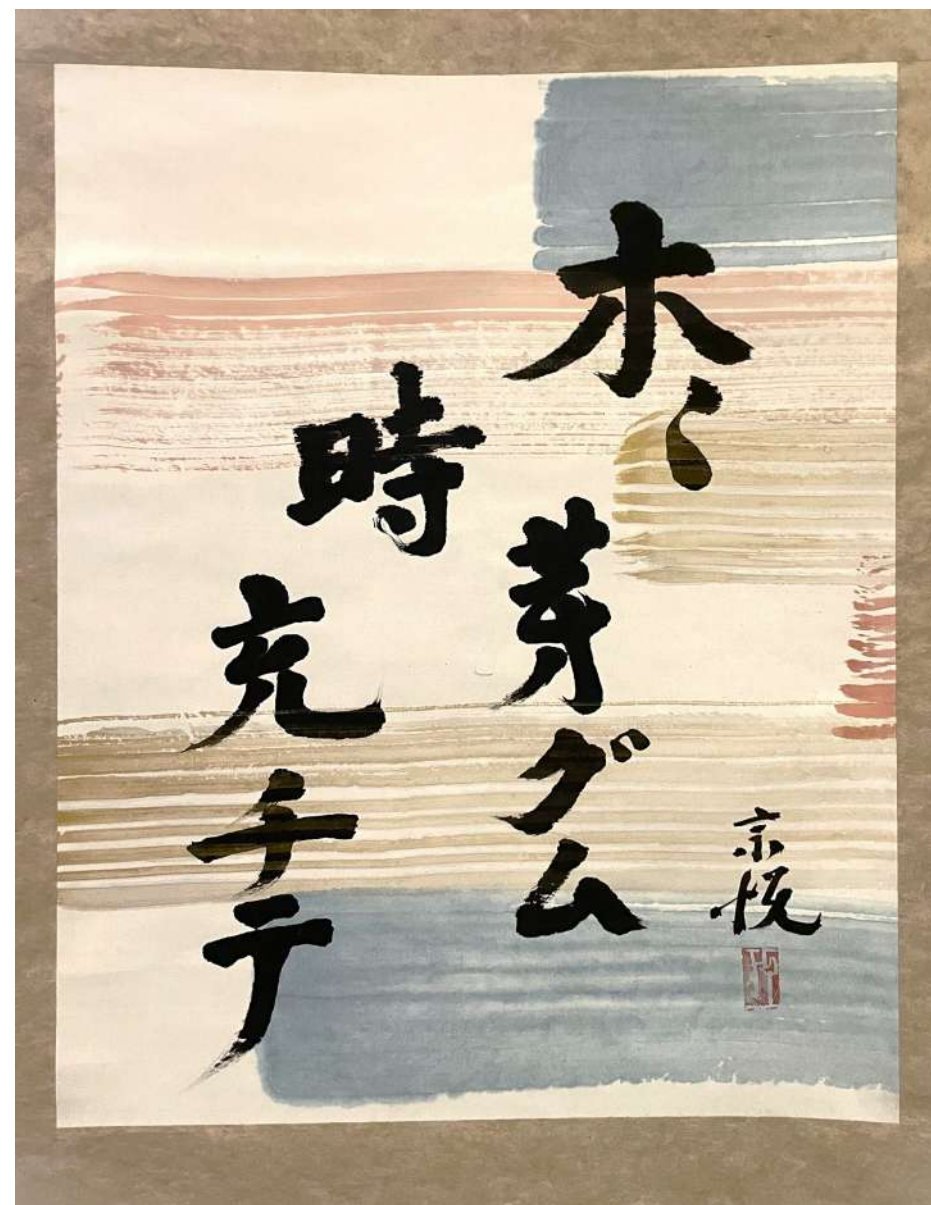 木々
芽グム
時
充チテ
宗悦